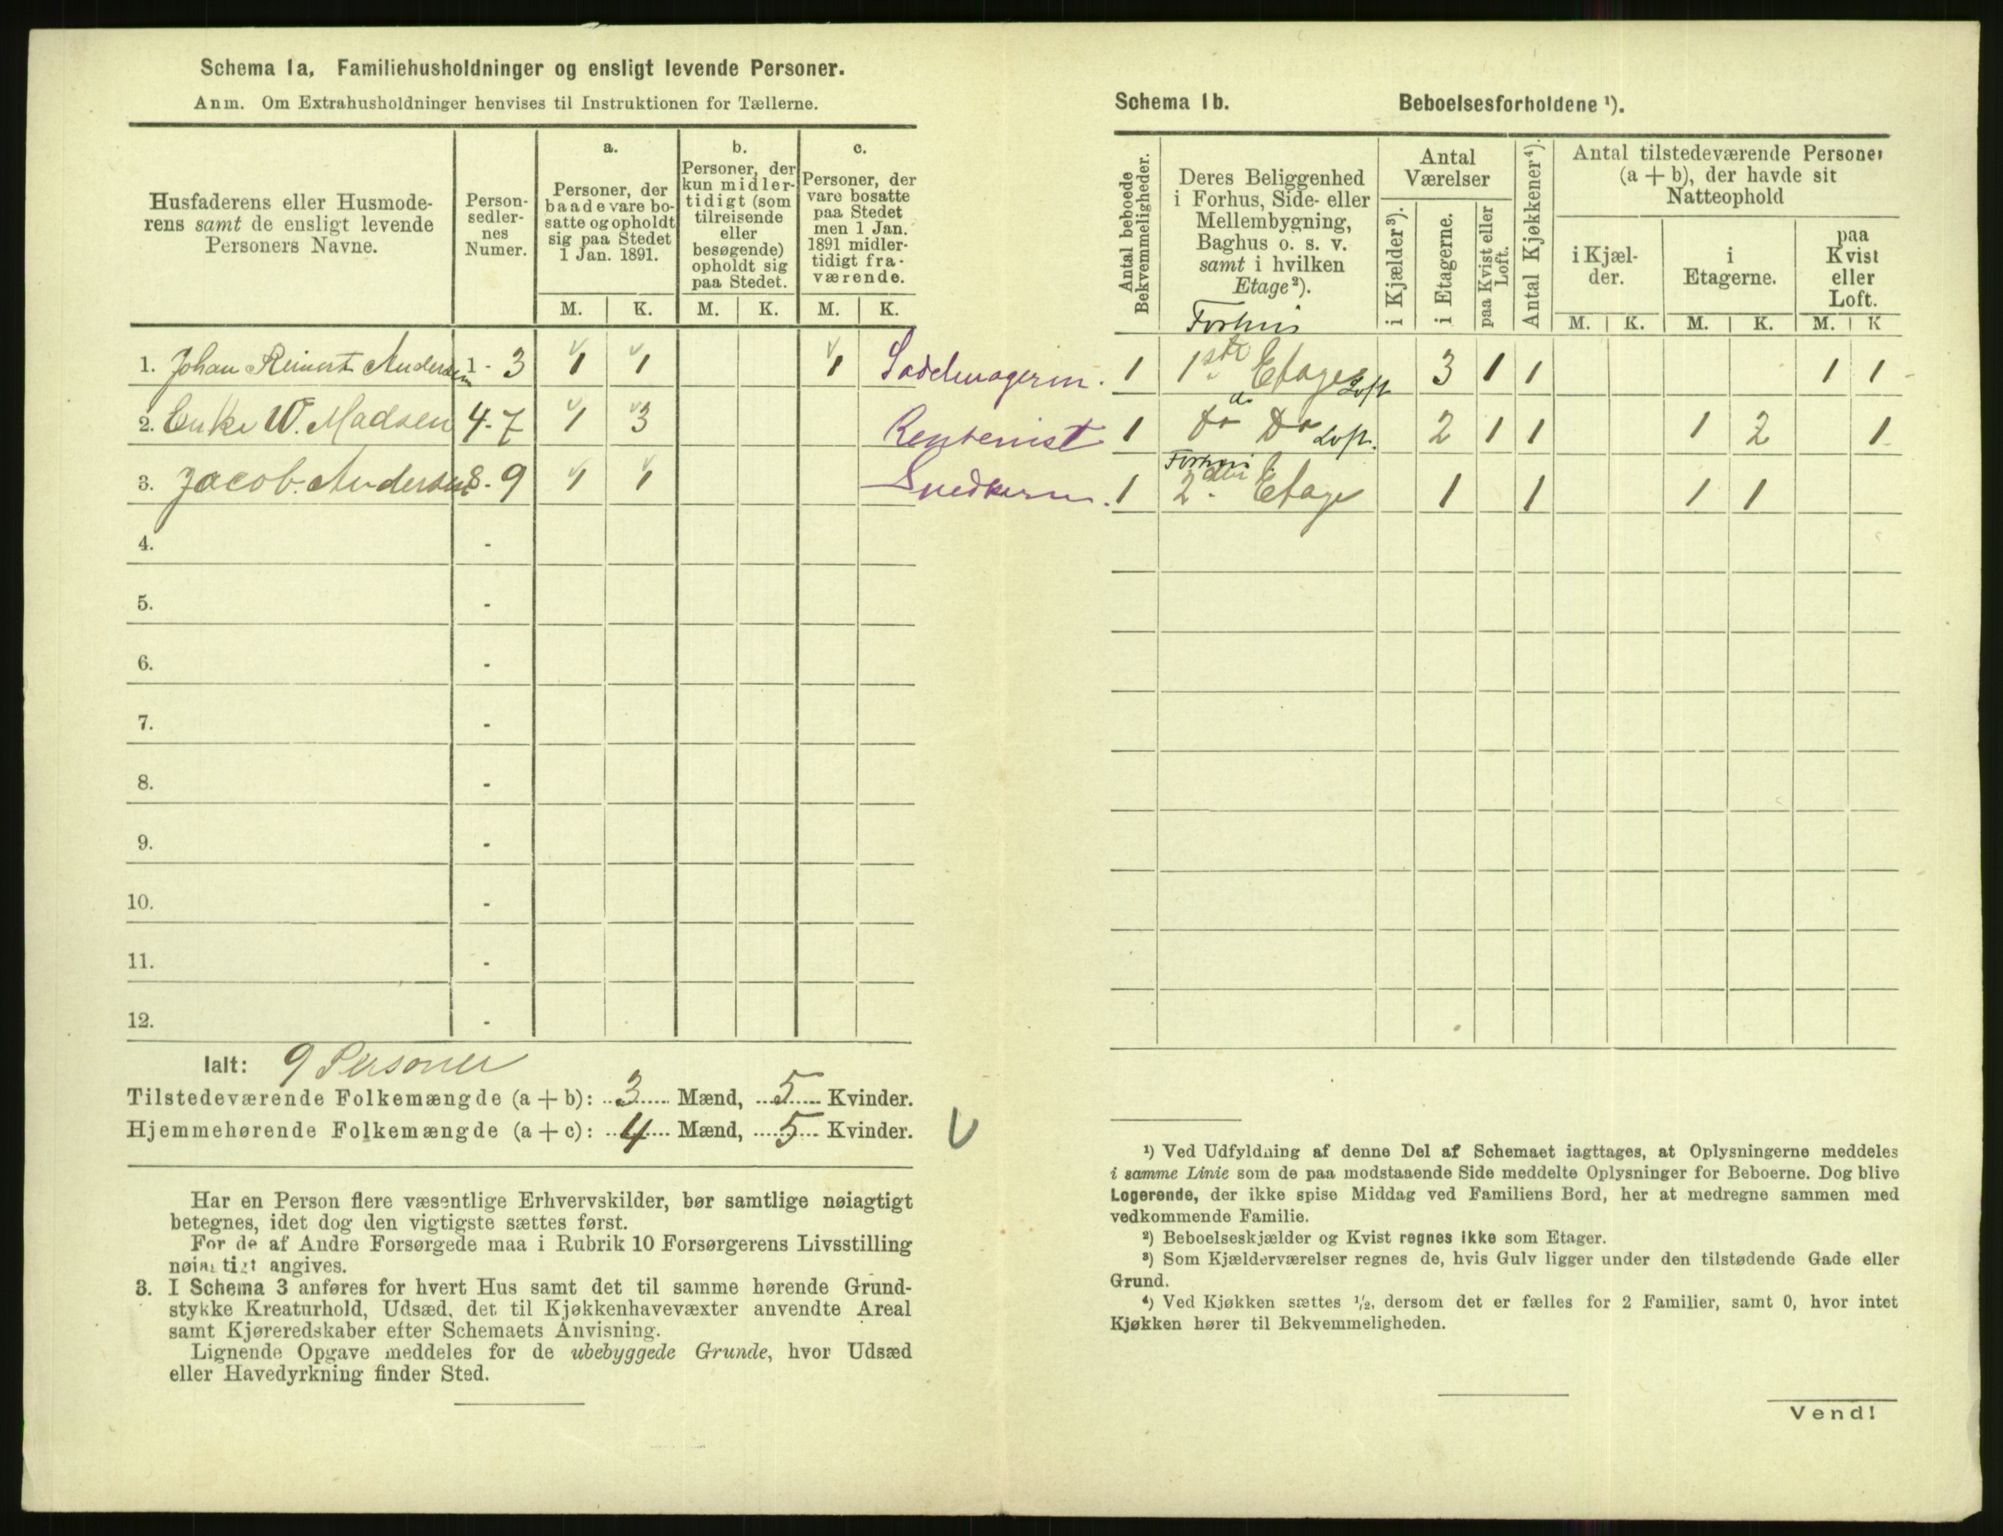 Schema 1a, Familiehusholdninger og ensligt levende Personer.
Anm. Om Extrahusholdninger henvises til Instruktionen for Tællerne.
Husfaderens eller Husmode-
rens samt de ensligt levende
Personers Navne.
Person-
sedler-
nes
Numer.
a.
Personer, der
baade vare bo-
satte og opholdt
sig paa Stedet
1 Jan. 1891.
b.
Personer, der
kun midler-
tidigt (som
tilreisende
eller
besøgende)
opholdt sig
paa Stedet.
c.
Personer, der
vare bosatte
paa Stedet
men 1 Jan.
1891 midler-
tidigt fra-
værende.
M. K. M. K. M. K.
1. Johan Reinert Andersen 1 - 3 1 1 1 Sadelmagerm.
2. Enke W. Madsen 4 - 7 1 3 Rentenist
3. Jacob Andersen 8 - 9 1 1 Snedkerm.
4. -
5. -
6. -
7. -
8. -
9. -
10. -
11. -
12. -
Ialt: 9 Personer
Tilstedeværende Folkemængde (a + b): 3 Mænd, 5 Kvinder.
Hjemmehørende Folkemængde (a + c): 4 Mænd, 5 Kvinder.
Har en Person flere væsentlige Erhvervskilder, bør samtlige nøiagtigt
betegnes, idet dog den vigtigste sættes først.
For de af Andre Forsørgede maa i Rubrik 10 Forsørgerens Livsstilling
nøiagtigt angives.
3. I Schema 3 anføres for hvert Hus samt det til samme hørende Grund-
stykke Kreaturhold, Udsæd, det til Kjøkkenhavevæxter anvendte Areal
samt Kjøreredskaber efter Schemaets Anvisning.
Lignende Opgave meddeles for de ubebyggede Grunde, hvor Udsæd
eller Havedyrkning finder Sted.
Schema 1b. Beboelsesforholdene ¹).
Antal beboede
Bekvemmeligheder.
Deres Beliggenhed
i Forhus, Side- eller
Mellembygning,
Baghus o. s. v.
samt i hvilken
Etage²).
Antal
Værelser
i Kjælder³).
i Etagerne.
paa Kvist eller
Loft.
Antal Kjøkkener⁴).
Antal tilstedeværende Personer
(a + b), der havde sit
Natteophold
i Kjæl-
der.
i
Etagerne.
paa
Kvist
eller
Loft.
M. K. M. K. M. K
Forhus
1 1ste Etage Loft 3 1 1 1 1
1 do Do Loft. 2 1 1 1 2 1
Forhus
1 2den Etage 1 1 1 1
¹) Ved Udfyldning af denne Del af Schemaet iagttages, at Oplysningerne meddeles
i samme Linie som de paa modstaaende Side meddelte Oplysninger for Beboerne. Dog blive
Logerende, der ikke spise Middag ved Familiens Bord, her at medregne sammen med
vedkommende Familie.
²) Beboelseskjælder og Kvist regnes ikke som Etager.
³) Som Kjælderværelser regnes de, hvis Gulv ligger under den tilstødende Gade eller
Grund.
⁴) Ved Kjøkken sættes ¹/₂, dersom det er fælles for 2 Familier, samt 0, hvor intet
Kjøkken hører til Bekvemmeligheden.
Vend!